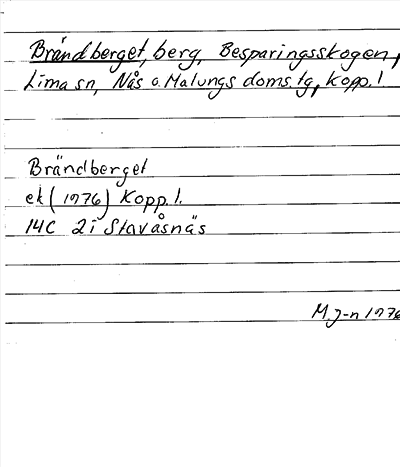 Brändberget, berg, Besparingsskogen,
Lima sn, Nås o. Malungs doms. tg, Kopp. l
Brändberget
ek (1976) Kopp. l.
14C 2i Stavåsnäs
M. J-n 1976